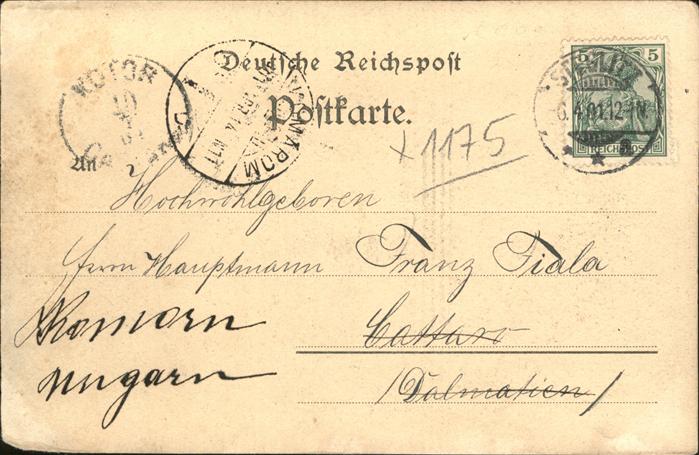 Deutsche Reichspost
Postkarte.
KOTOR
KOMÁROM
5 5
REICHSPOST
6.4.01.12-1N.
+1175
An
Hochwohlgeboren
Herrn Hauptmann Franz Fiala
Cattaro
Komorn
(Dalmatien)
Ungarn